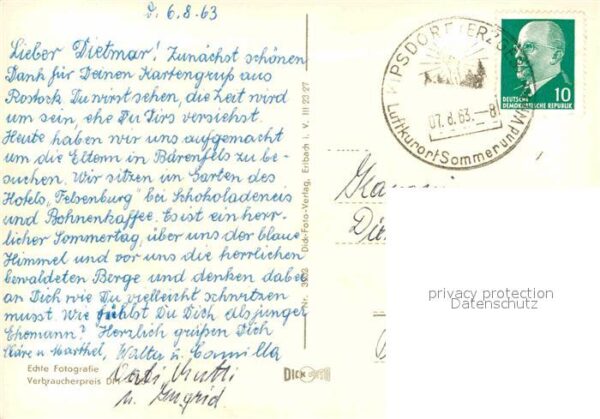 d. 6.8.63
Lieber Dietmar! Zunächst schönen
Dank für Deinen Kartengruß aus
Rostock. Du wirst sehen, die Zeit wird
um sein, ehe Du Dirs versiehst.
Heute haben wir uns aufgemacht
um die Eltern in Bärenfels zu be-
suchen. Wir sitzen im Garten des
Hotels „Felsenburg" bei Schokoladeneis
und Bohnenkaffee. Es ist ein herr-
licher Sommertag, über uns der blaue
Himmel und vor uns die herrlichen
bewaldeten Berge und denken dabei
an Dich wie Du vielleicht schwitzen
musst. Wie fühlst Du Dich als junger
Ehemann? Herzlich grüßen Dich
Kläre u. Marthel, Walter u. Camilla
Vati, Mutti
u. Ingrid
Echte Fotografie
Verbraucherpreis
DICK FOTO
Nr. Dick-Foto-Verlag, Erlbach i. V. III 23 27
KIPSDORF (ERZGEB
07. 8. 63. - 8
Luftkurort Sommer und Wi
DEUTSCHE
DEMOKRATISCHE REPUBLIK
10
privacy protection
Datenschutz